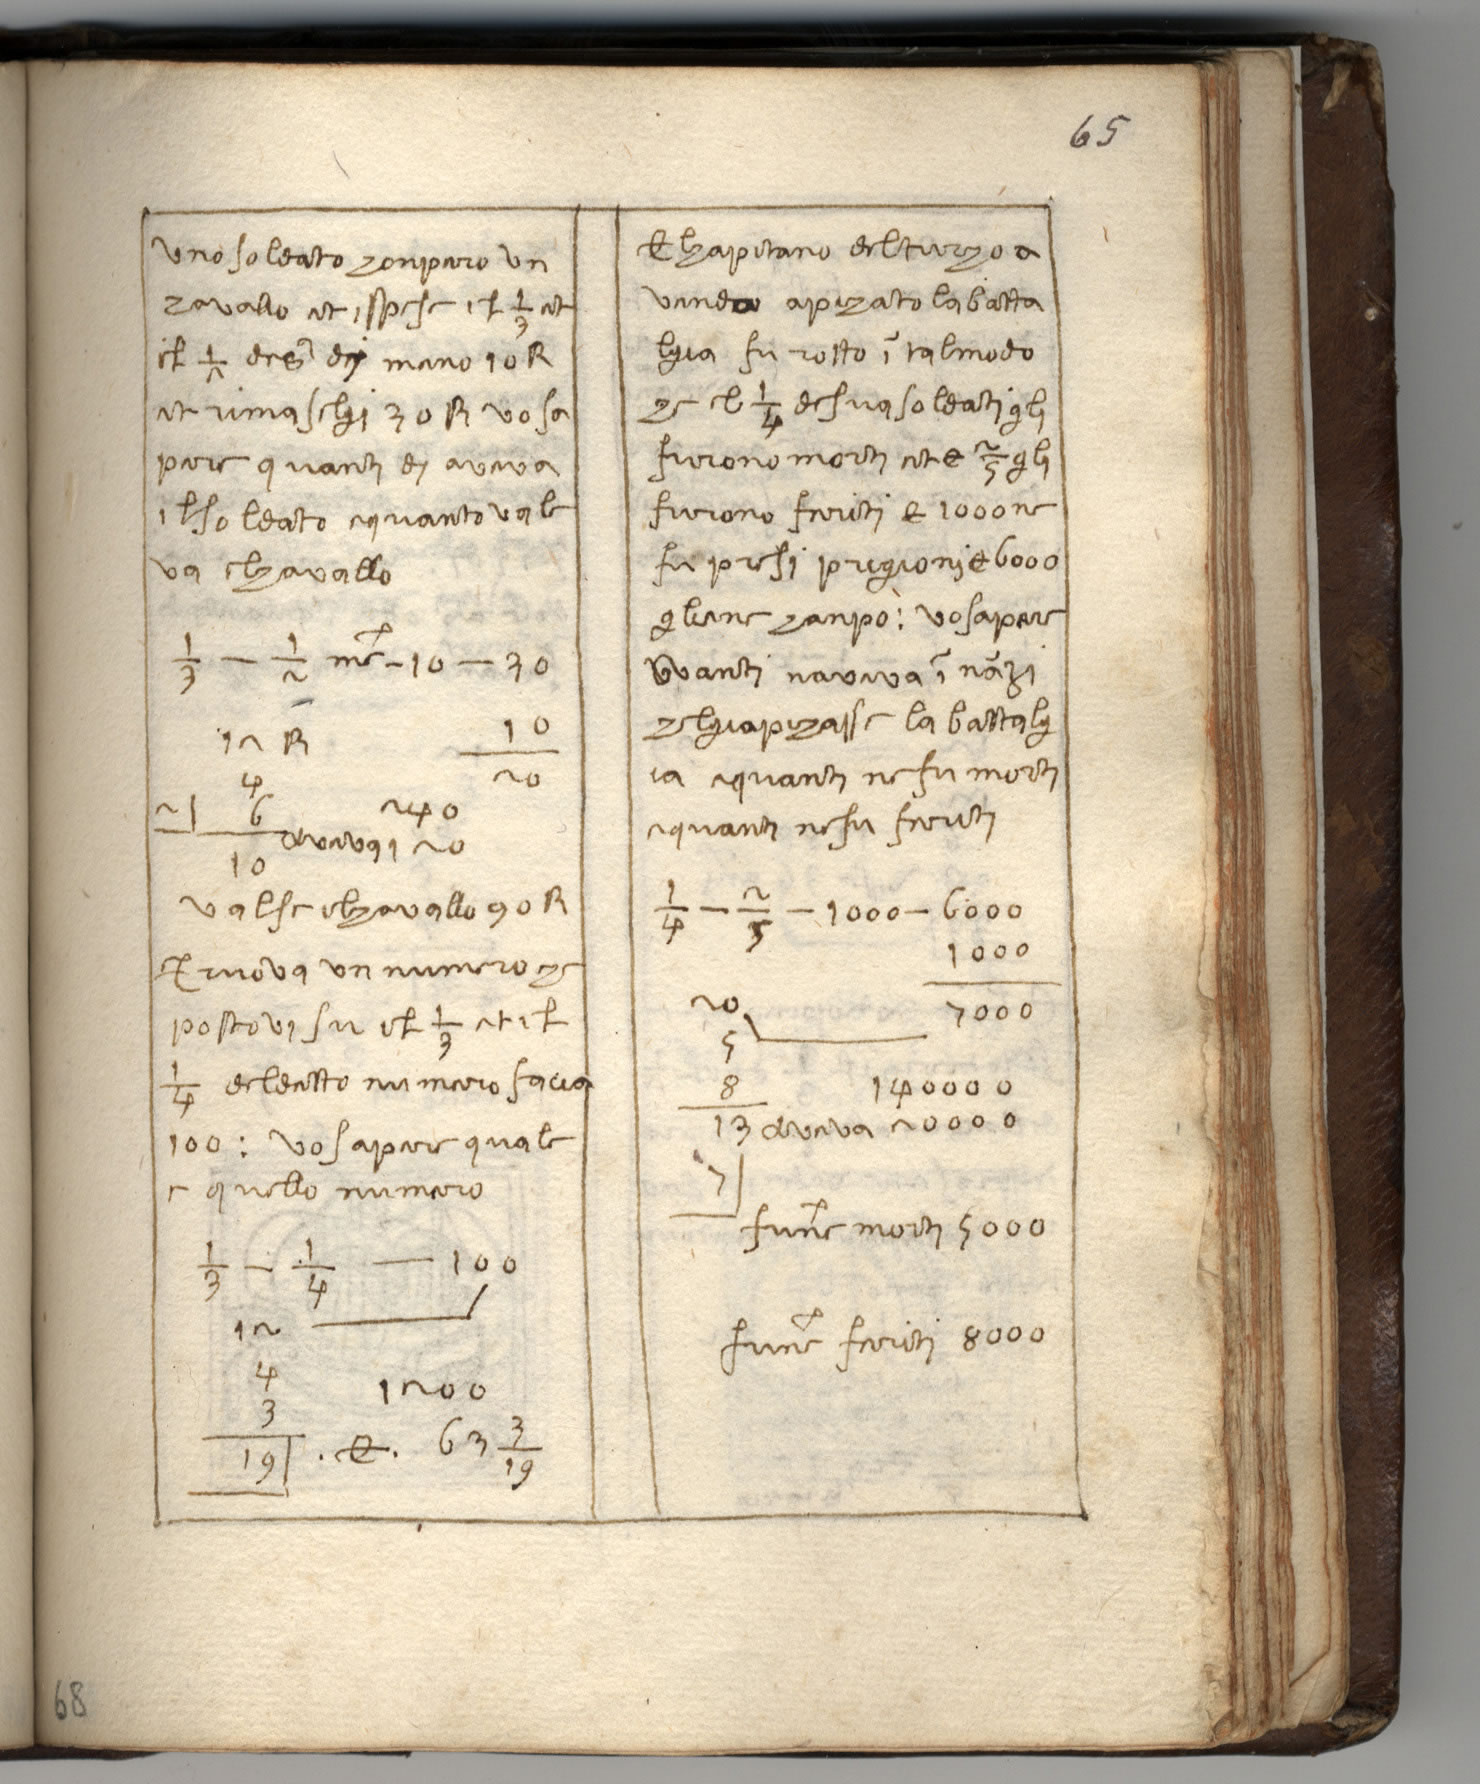 65
uno soldato zonpero un
zavallo et ispese il 1/3 et
il 1/2 de s. dj meno 10 R
et rimaschi 30 R vo sa
pere quantj dj aveva
il soldato equanto vale
va elzavallo
1/3 — 1/2 me - 10 — 30
12 R 10
4 20
2 6 240
10 aveva i 20
valse elzavallo 90 R
Truova un numero ze
postovi su il 1/3 et il
1/4 deldetto numero facia
100: vo sapere quale
e quello numero
1/3 — 1/4 — 100
12
4 1200
3
19 . E . 63 3/19
El zapitano delturzo a
vendo apizato la batta
lgia fu rotto ĩ tal modo
ze el 1/4 de sua soldatj glj
furono mortj et e 2/5 glj
furono feritj e 1000 ne
fu presi prigionj e 6000
gliene zanpò: vo sapere
quantj naveva ĩ nãzi
zelgiapizasse la battalg
ia equantj ne fu mortj
equantj nefu feritj
1/4 — 2/5 — 1000 — 6000
1000
20 7000
5
8 140000
13 aveva 20000
7
fune mortj 5000
fune feritj 8000
68